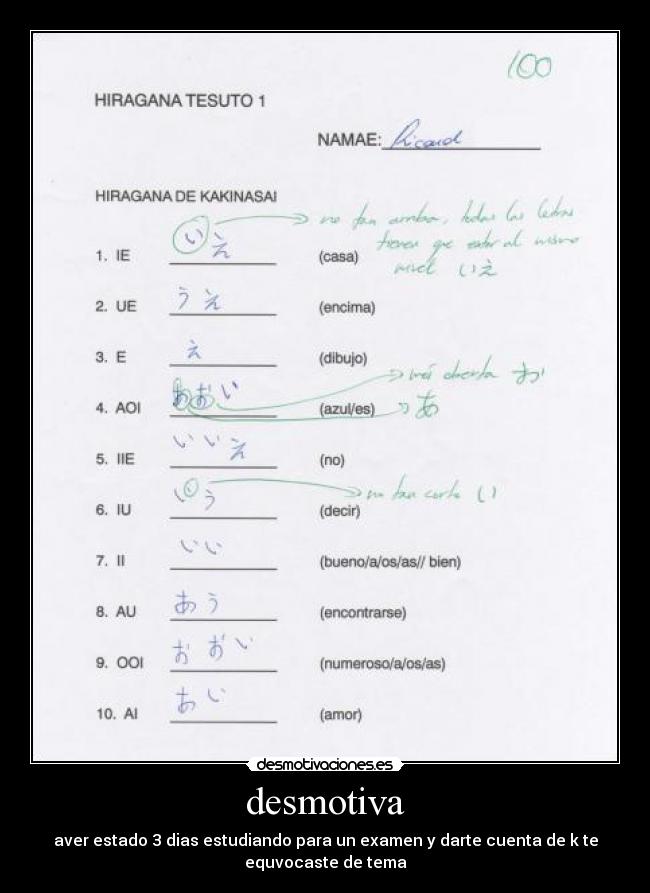 100
HIRAGANA TESUTO 1
NAMAE: Ricard
HIRAGANA DE KAKINASAI
no tan arriba, todas las letras
tienen que estar al mismo
nivel いえ
1. IE いえ (casa)
2. UE うえ (encima)
3. E え (dibujo)
お
4. AOI あおい (azul/es) あ
5. IIE いいえ (no)
no tan corto い
6. IU いう (decir)
7. II いい (bueno/a/os/as// bien)
8. AU あう (encontrarse)
9. OOI おおい (numeroso/a/os/as)
10. AI あい (amor)
desmotivaciones.es
desmotiva
aver estado 3 dias estudiando para un examen y darte cuenta de k te
equvocaste de tema